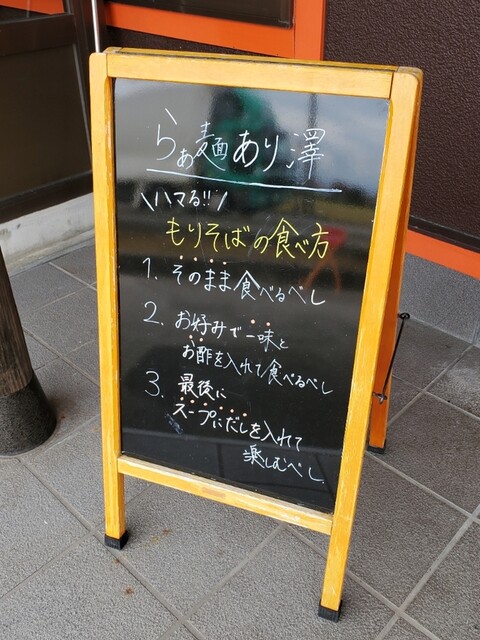 らぁ麺 あり澤
\ハマる!!/
もりそばの食べ方
1. そのまま食べるべし
2. お好みで一味と
お酢を入れて食べるべし
3. 最後に
スープにだしを入れて
楽しむべし